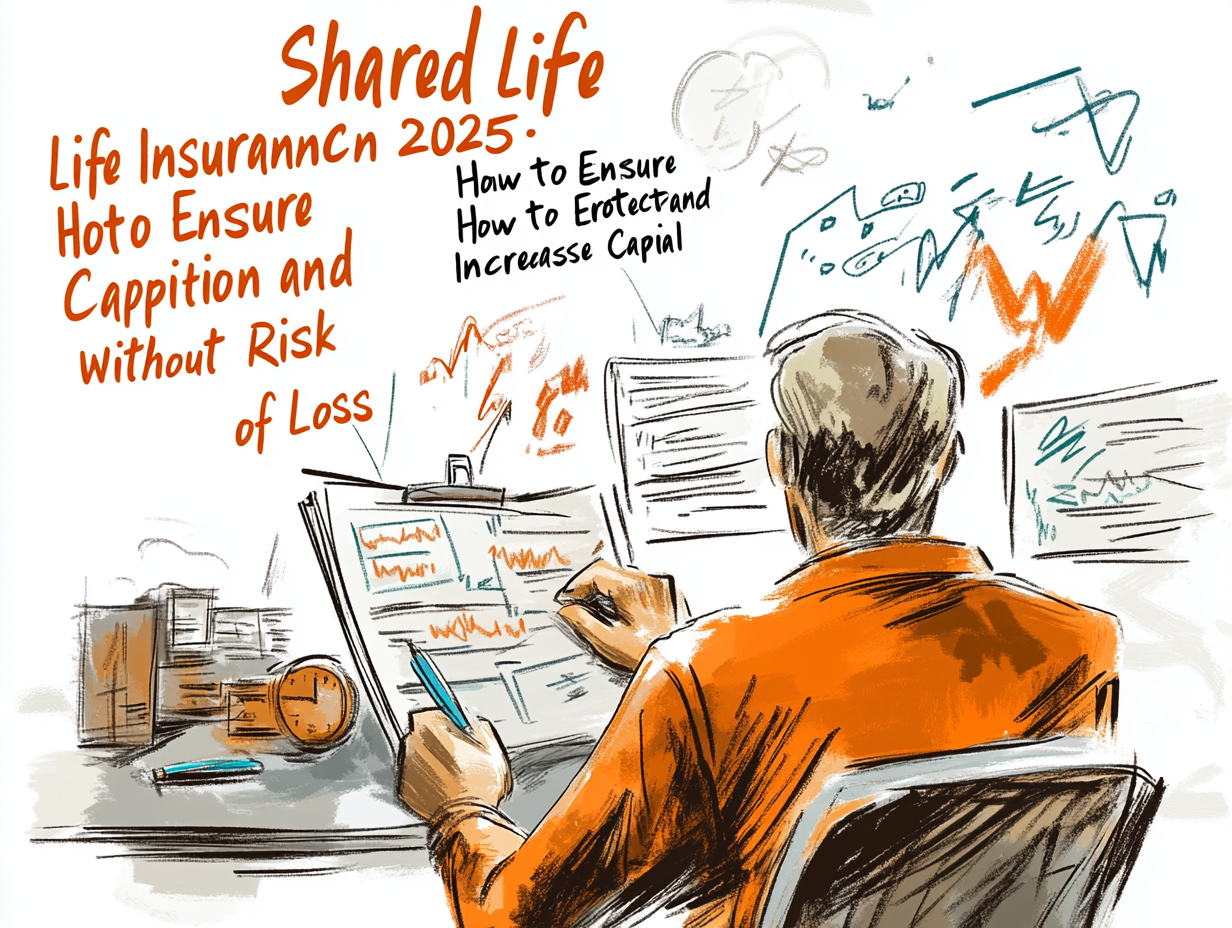 Shared Life
Life InsurannCn 2025.
Hoto Ensure
Cappition and
without Risk
of Loss
How to Ensure
How to Erotectand
Increasse Capial